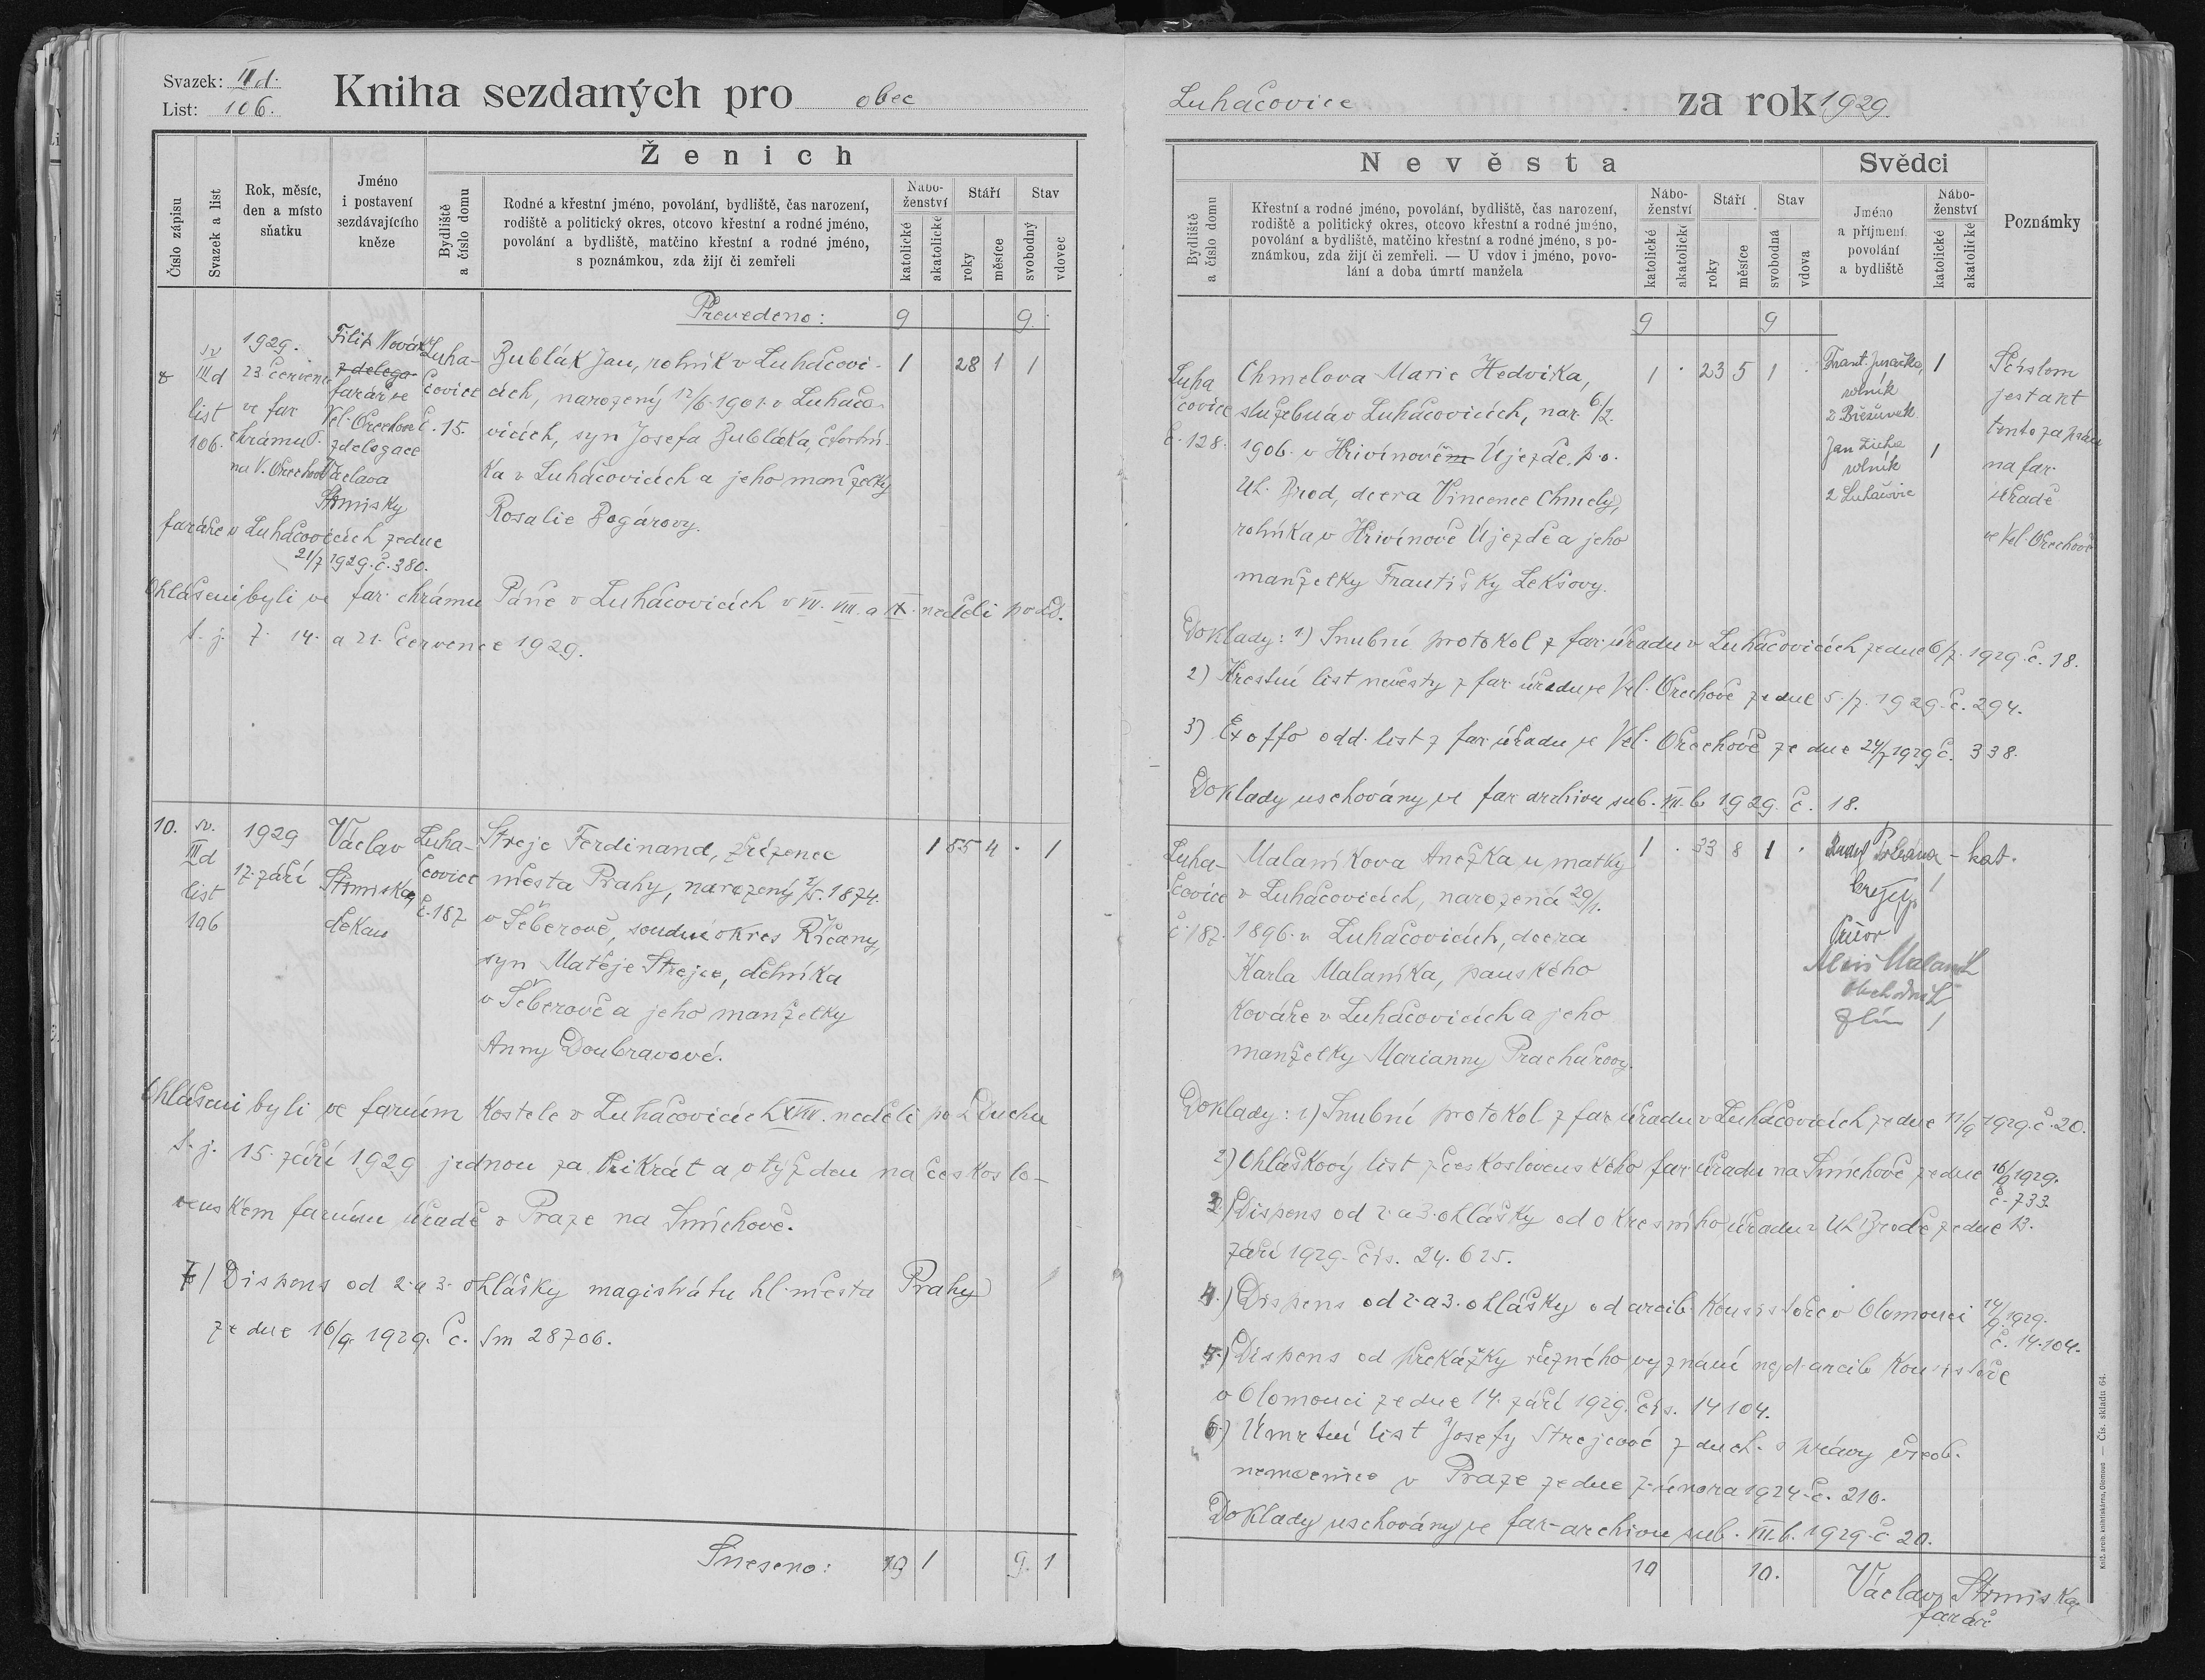 Svazek: III d.
List: 106.
Kniha sezdaných pro obec
Ženich
Číslo zápisu
Svazek a list
Rok, měsíc,
den a místo
sňatku
Jméno
i postavení
sezdávajícího
kněze
Bydliště
a číslo domu
Rodné a křestní jméno, povolání, bydliště, čas narození,
rodiště a politický okres, otcovo křestní a rodné jméno,
povolání a bydliště, matčino křestní a rodné jméno,
s poznámkou, zda žijí či zemřeli
Nábo-
ženství
katolické
akatolické
Stáří
roky
měsíce
Stav
svobodný
vdovec
Převedeno: 9 9.
sv
III d
list
106.
1929.
23 červen
ve far
chrámu P.
na V. Ořechově
Filip Novák
z delega
farář ve
Vel. Ořechově
z delegace
Václava
Strmisky
faráře v Luhačovicích ze dne
21/7 1929. č. 380.
Luha-
čovice
č. 15.
Zublák Jan, rolník v Luhačovi-
cích, narozený 12/6. 1901. v Luhačo-
vicích, syn Josefa Zubláka, čtvrtní-
ka v Luhačovicích a jeho manželky
Rosalie Bogárovy.
1 28 1 1
Ohlášeni byli ve far. chrámu Páně v Luhačovicích v VII. VIII. a IX. neděli po sD.
t. j. 7. 14. a 21. července 1929.
10.
sv.
III d
list
106
1929
17. září
Václav
Strmiska,
děkan
Luha-
čovice
č. 187
Strejc Ferdinand, zřízenec
města Prahy, narozený 2/5. 1874.
v Šeberově, soudní okres Říčany,
syn Matěje Strejce, dělníka
v Šeberově a jeho manželky
Anny Doubravové.
1 55 4 . 1
Ohlášeni byli ve farním kostele v Luhačovicích XVII. neděli po s Duchu
t. j. 15. září 1929 jednou za třikrát a o týžden na českoslo-
venském farním úřadě v Praze na Smíchově.
7) Dispens od 2. a 3. ohlášky magistrátu hl. města Prahy
ze dne 16/9. 1929. č. Sm 28706.
Sneseno: 9 1 9. 1
Luhačovice za rok 1929.
Nevěsta
Bydliště
a číslo domu
Křestní a rodné jméno, povolání, bydliště, čas narození,
rodiště a politický okres, otcovo křestní a rodné jméno,
povolání a bydliště, matčino křestní a rodné jméno, s po-
známkou, zda žijí či zemřeli. — U vdov i jméno, povo-
lání a doba úmrtí manžela
Nábo-
ženství
katolické
akatolické
Stáří
roky
měsíce
Stav
svobodná
vdova
Svědci
Jméno
a příjmení
povolání
a bydliště
Nábo-
ženství
katolické
akatolické
Poznámky
9 9
Luha
čovice
č. 128.
Chmelova Marie Hedvika,
služebná v Luhačovicích, nar. 6/2.
1906. v Hřivínovém Újezdě, p. o.
Uh. Brod, dcera Vincence Chmely,
rolníka v Hřivínově Újezdě a jeho
manželky Františky Leksovy.
1 . 23 5 1 .
Frant. 1
rolník
z Březůvek
Jan 1
rolník
z Luhačovic
Číslem
jest akt
tento zapsán
na far.
úřadě
ve Vel. Ořechově
Doklady: 1) Snubní protokol z far. úřadu v Luhačovicích ze dne 6/7. 1929. č. 18.
2) Křestní list nevěsty z far. úřadu ve Vel. Ořechově ze dne 5./7. 1929. č. 294.
3) Ex offo odd. list z far. úřadu ve Vel. Ořechově ze dne 24/7 1929 č. 338.
Doklady uschovány ve far. archivu sub. VII. b 1929. č. 18.
Luha-
čovice
č. 187.
Malaníkova Anežka u matky
v Luhačovicích, narozená 29/1.
1896. v Luhačovicích, dcera
Karla Malaníka, panského
kováře v Luhačovicích a jeho
manželky Marianny Prachařovy.
1 . 33 8 1 .
kat.
krejčí
Alois Malaník
obchodník
Zlín 1
Doklady: 1) Snubní protokol z far. úřadu v Luhačovicích ze dne 11/9 1929. č. 20.
2) Ohláškový list z československého far. úřadu na Smíchově ze dne 16/9 1929.
č. 733.
3.) Dispens od 2. a 3. ohlášky od okresního úřadu v Uh. Brodě ze dne 13.
září 1929. čís. 24.625.
4.) Dispens od 2. a 3. ohlášky od arcib. konsistoře v Olomouci 14/9. 1929.
č. 14.104.
5.) Dispens od překážky různého vyznání nejd. arcib. konsistoře
v Olomouci ze dne 14. září 1929. čís. 14104.
6) Úmrtní list Josefy Strejcové z duch. správy všeob.
nemocnice v Praze ze dne 7. února 1924. č. 210.
Doklady uschovány ve far. archivu sub. VII. b. 1929. č 20.
10 10.
Václav Strmiska,
farář
Kniž. arcib. knihtiskárna, Olomouc — Čís. skladu 64.